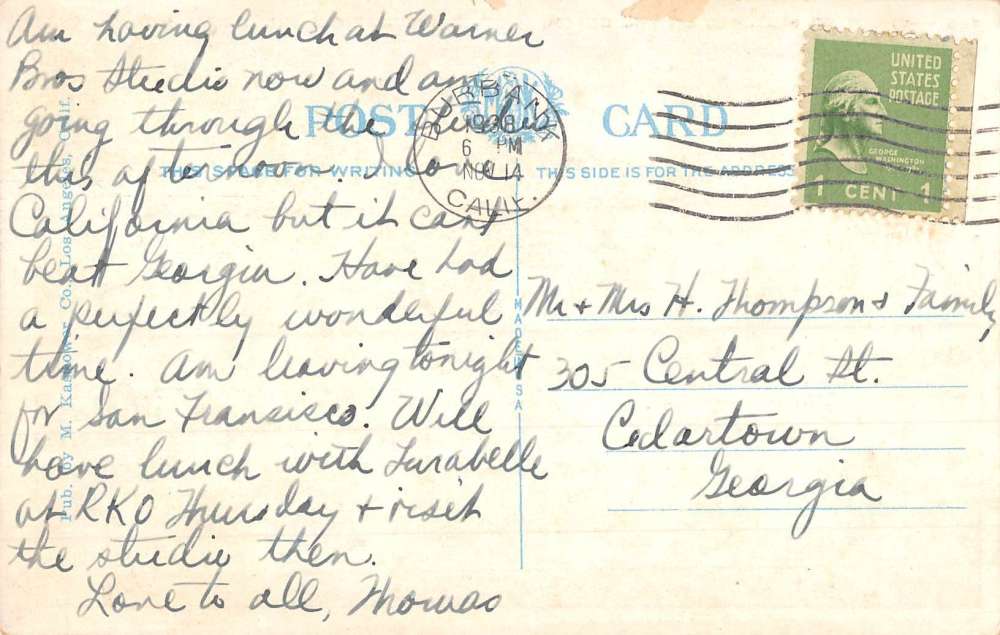 Am having lunch at Warner
Bros Studio now and am
going through the Studio
this afternoon. I love
California but it can't
beat Georgia. Have had
a perfectly wonderful
time. Am leaving tonight
for San Francisco. Will
have lunch with Lurabelle
at RKO Thursday + visit
the studio then.
Love to all, Thomas
POST CARD
THIS SPACE FOR WRITING
THIS SIDE IS FOR THE ADDRESS
BURBANK
1938
6 PM
NOV 14
CALIF.
UNITED
STATES
POSTAGE
GEORGE
WASHINGTON
1 CENT 1
Mr + Mrs H. Thompson + Family
305 Central St.
Cedartown
Georgia
MADE IN USA
Pub. by M. Kashower Co., Los Angeles, Calif.